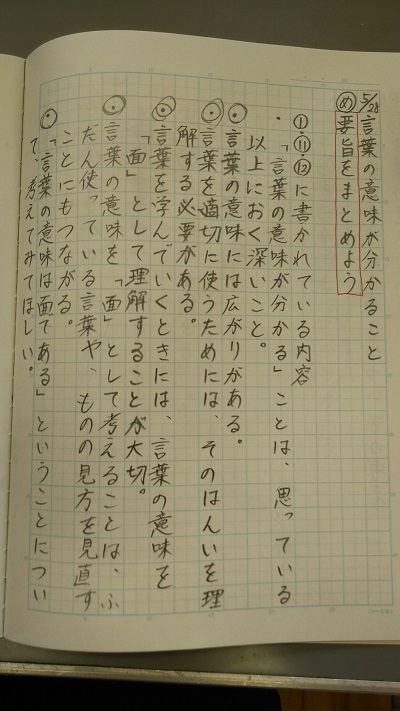 5/28 言葉の意味が分かること
め 要旨をまとめよう
①・⑪・⑫に書かれている内容
・「言葉の意味が分かる」ことは、思っている
以上におく深いこと。
・言葉の意味には広がりがある。
・言葉を適切に使うためには、そのはんいを理
解する必要がある。
・言葉を学んでいくときには、言葉の意味を
「面」として理解することが大切。
・言葉の意味を「面」として考えることは、ふ
だん使っている言葉や、ものの見方を見直す
ことにもつながる。
・「言葉の意味は面である」ということについ
て、考えてみてほしい。